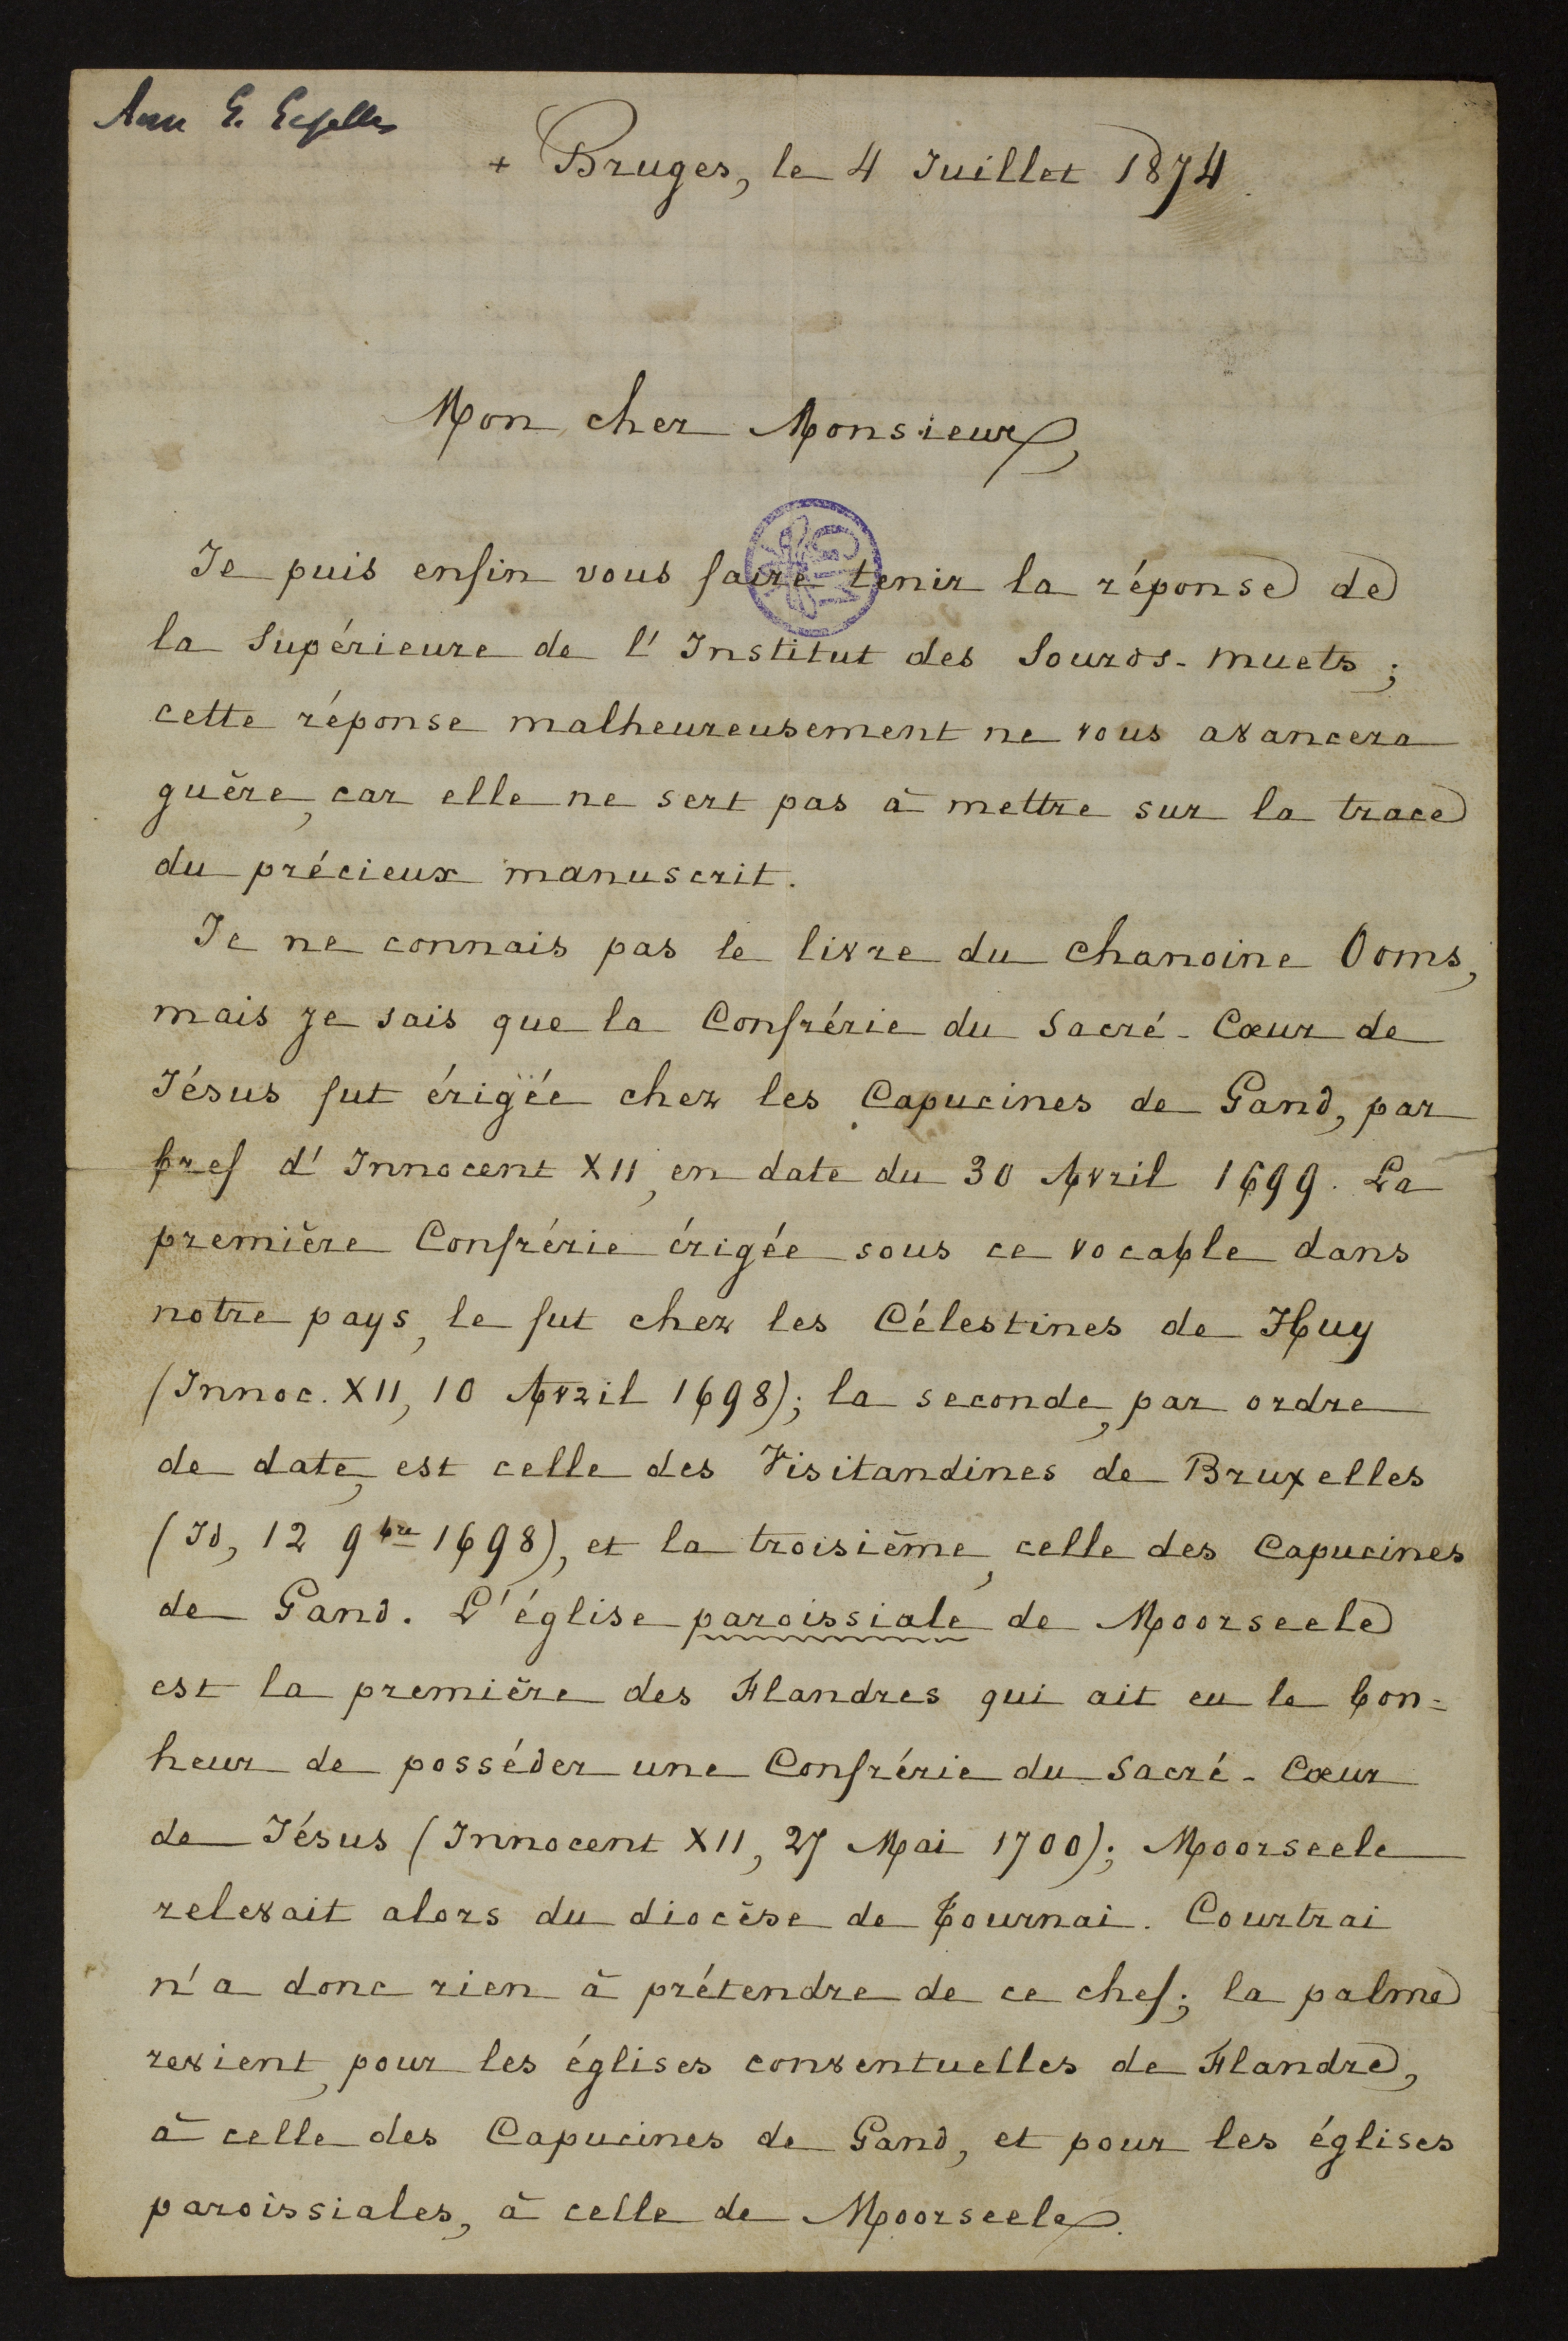 + Bruges, le 4 Juillet 1874.
Mon cher Monsieur,
Je puis enfin vous faire tenir la réponse de
la Supérieure de l'Institut des Sourds-muets ;
cette réponse malheureusement ne vous avancera
guère, car elle ne sert pas à mettre sur la trace
du précieux manuscrit.
Je ne connais pas le livre du chanoine Ooms,
mais je sais que la Confrérie du Sacré-Cœur de
Jésus fut érigée chez les Capucines de Gand, par
bref d'Innocent XII, en date du 30 Avril 1699. La
première Confrérie érigée sous ce vocable dans
notre pays, le fut chez les Célestines de Huy
(Innoc. XII, 10 Avril 1698); la seconde, par ordre
de date, est celle des Visitandines de Bruxelles
(Id, 12 9bre 1698), et la troisième, celle des Capucines
de Gand. L'église paroissiale de Moorseele
est la première des Flandres qui ait eu le bon=
heur de posséder une Confrérie du Sacré-Cœur
de Jésus (Innocent XII, 27 Mai 1700); Moorseele
relevait alors du diocèse de Tournai. Courtrai
n'a donc rien à prétendre de ce chef; la palme
revient, pour les églises conventuelles de Flandre,
à celle des Capucines de Gand, et pour les églises
paroissiales, à celle de Moorseele.